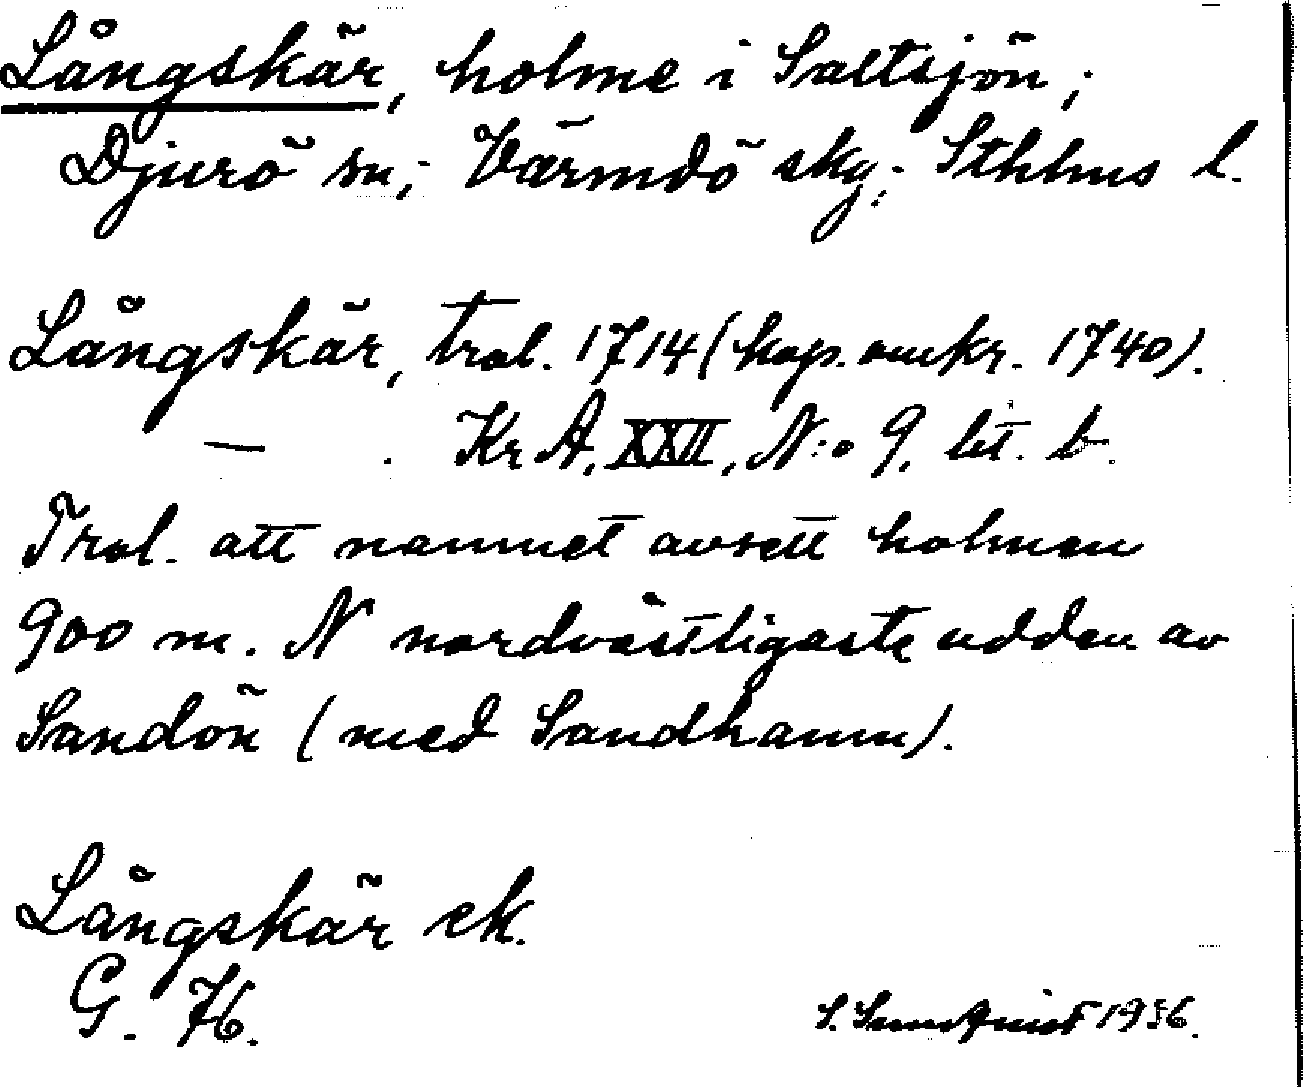 Långskär, holme i Saltsjön;
Djurö sn; Värmdö skg; Sthlms l.
Långskär, trol. 1714 (kop. omkr. 1740).
— . Kr A, XXII, N:o 9, lit. b.
Trol. att namnet avsett holmen
900 m. N nordvästligaste udden av
Sandön (med Sandhamn).
Långskär ek.
G. 76.
S. Sundqvist 1936.